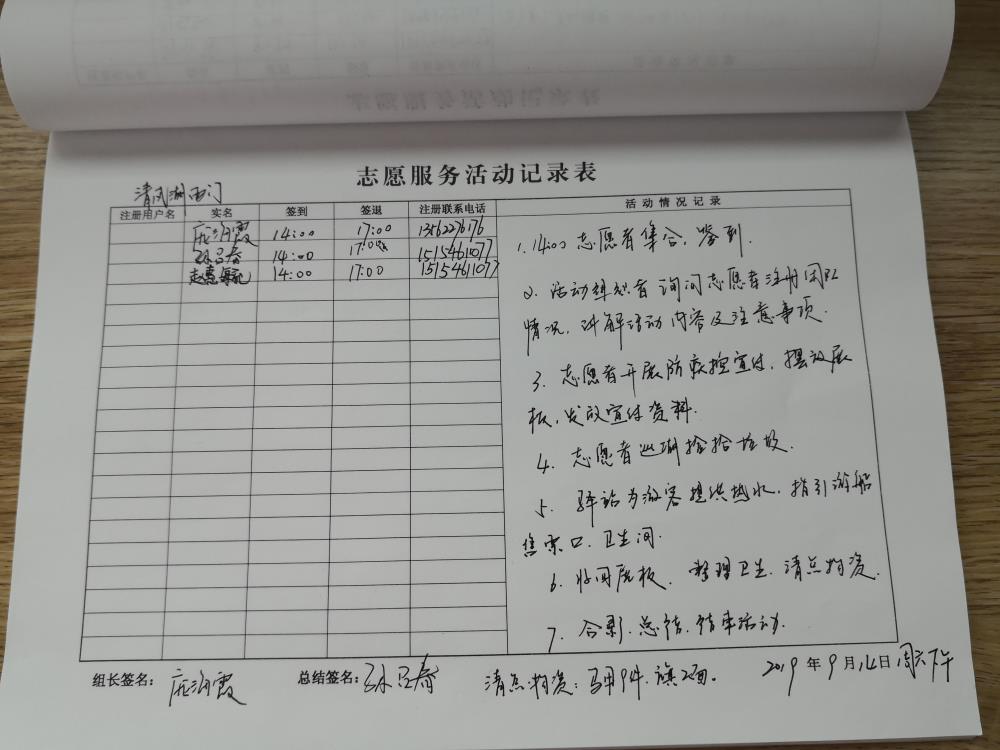 志愿服务活动记录表
清风湖西门
注册用户名 实名 签到 签退 注册联系电话 活动情况记录
庞润霞 14:00 17:00
孙吕春 14:00 17:00 15154611077
14:00 17:00 15154611077
1. 14:00 志愿者集合,签到.
2. 活动组织者询问志愿者注册闭环
情况,讲解活动内容及注意事项.
3. 志愿者开展防疾控宣传,摆放展
板,发放宣传资料.
4. 志愿者巡湖捡拾垃圾.
5. 驿站为游客提供热水,指引游船
售票口、卫生间.
6. 收回展板、整理卫生、清点物资.
7. 合影、总结、结束活动.
组长签名: 庞润霞 总结签名: 孙吕春 清点物资: 马甲9件、旗2面。 2019年9月14日周六下午